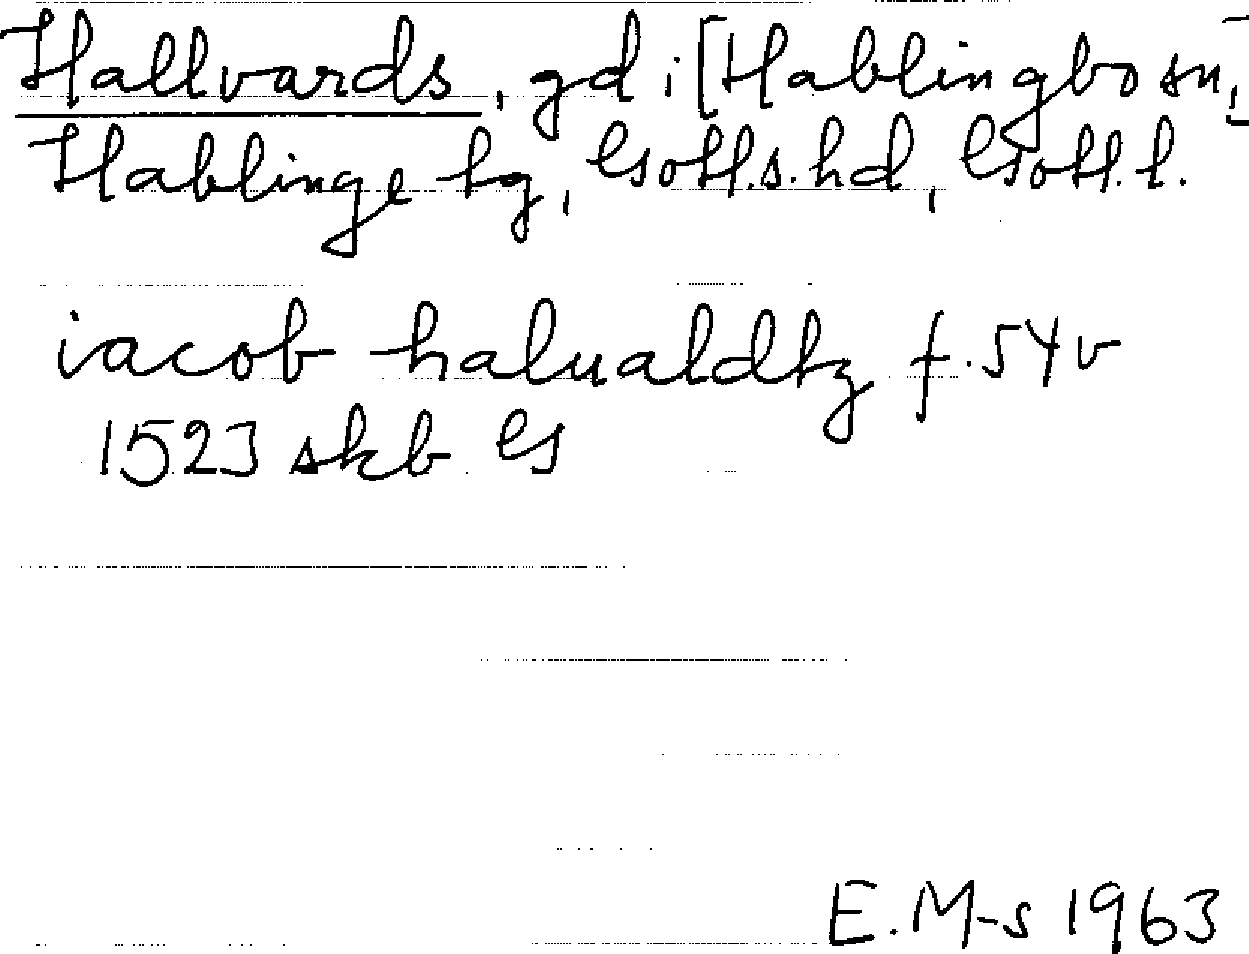 Hallvards, gd i [Hablingbo sn,]
Hablinge tg, Gotl.s.hd, Gotl.l.
iacob halualdtz f.54v
1523 skb G
E.M-s 1963